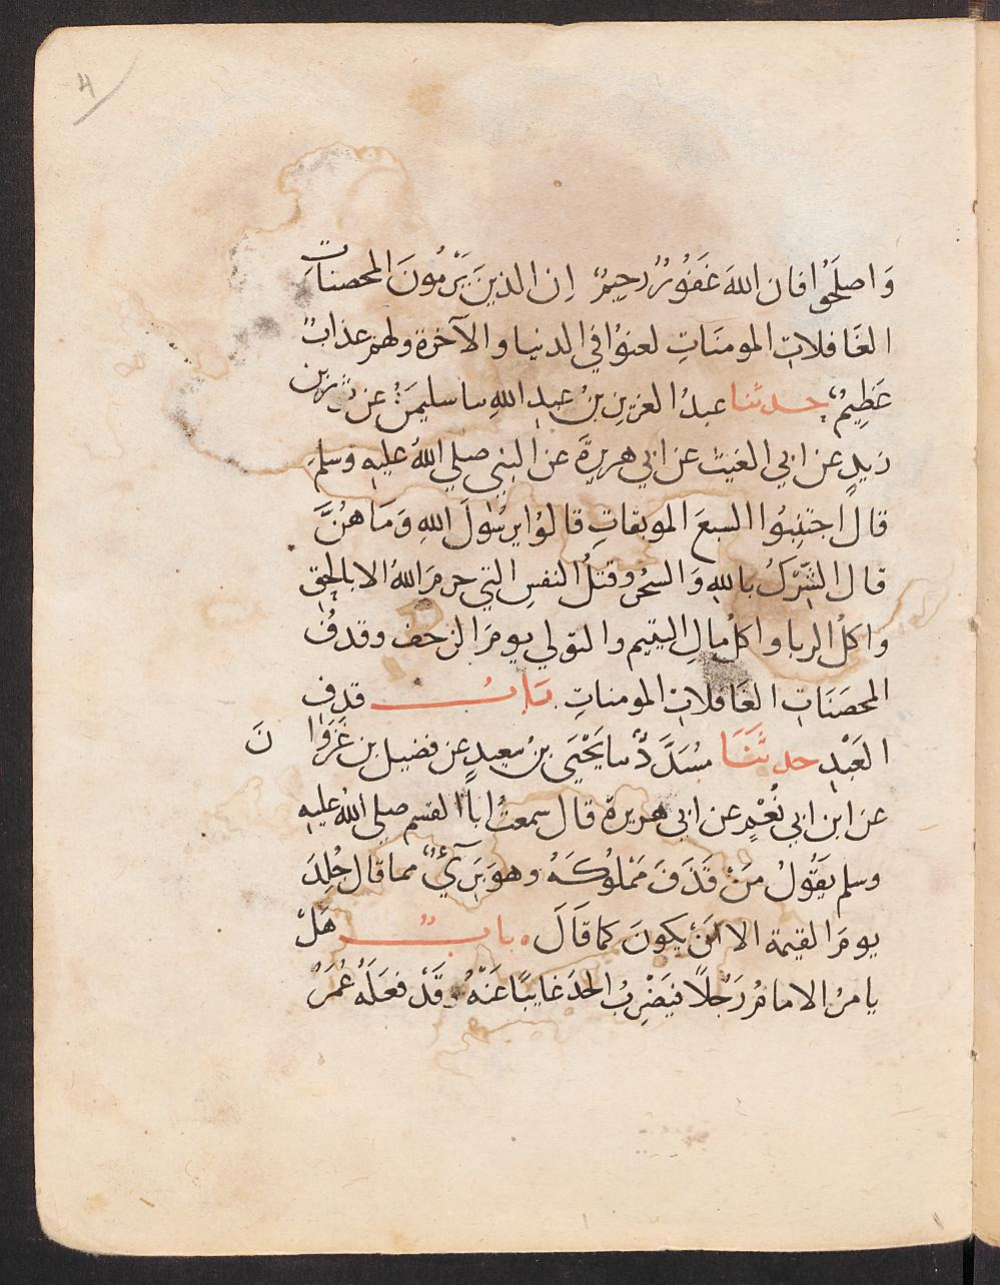 4
وَاصلَحُوا فان اللهَ غفَوُرٌ رحِيمٌ إن الذين يَرْمُونَ المحصناتِ
الغَافلاتِ المومنَاتِ لعنوُا في الدنيا والآخرة ولهم عذابٌ
عَظِيمٌ حدثنا عبدُ العزيزِ بنُ عبدِ اللهِ سا سليمنُ عن بن
زيدٍ عن ابي الغيث عن ابي هريرةَ عن النبي صلي اللهُ عليهِ وسلمَ
قال اجتَنِبُوا السبعَ الموبقاتِ قالوُا يرسُولَ اللهِ وَمَا هُنَّ
قال الشِّركُ باللهِ وَالسحُر وقتلُ النفسِ التي حرمَ اللهُ الا بالحِقِ
واكلُ الربا واكلُ مالِ اليتيم والتولي يومَ الزحف وقدفُ
المحصَنَاتِ الغَافلاتِ المومناتِ بَابُ قدفِ
العَبْدِ حدثَنَا مُسَدَّدٌ سا يَحْيَى بنُ سعيدٍ عن فضيل بن غَزوَا نَ
عن ابن ابي نُعْيمٍ عن ابي هريرة قال سمعتُ اباَ القسم صلي اللهُ عليهِ
وسلم يقَوُلُ مَنْ قَذَفَ مَمْلوُكَهُ وهوَ بَرِيٌ مما قال جُلِدَ
يومَ القيمة الا انْ يكونَ كما قَالَ بابٌ هَلْ
يامرُ الامامُ رَجُلاً فيَضْرِبُ الحدَ غايبًا عَنْهُ وقَدْ فعَلَهُ عُمَرُ